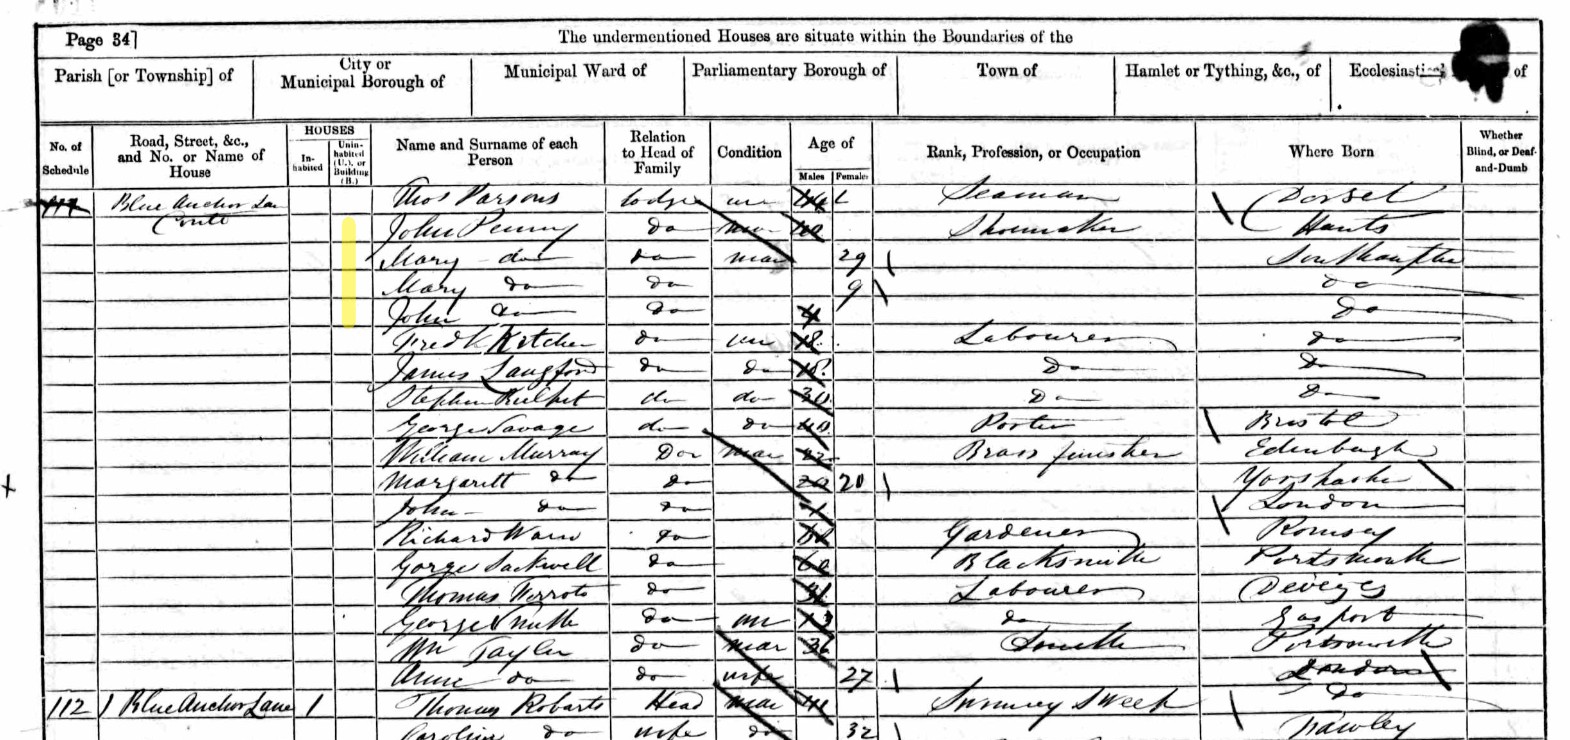 Page 34]
The undermentioned Houses are situate within the Boundaries of the
Parish [or Township] of City or Municipal Borough of Municipal Ward of Parliamentary Borough of Town of Hamlet or Tything, &c., of of
No. of Schedule Road, Street, &c., and No. or Name of House HOUSES In-habited Unin-habited (U.), or Building (B.) Name and Surname of each Person Relation to Head of Family Condition Age of Males Females Rank, Profession, or Occupation Where Born Whether Blind, or Deaf-and-Dumb
Blue Anchor Lan Thos Parsons lodge un Seaman Dorset
John Penny do Shoemaker Hants
Mary do do mar 29
Mary do do 9 do
John do do 4 do
Fredk Kitcher do un 18 Labourer do
James Langford do do 18 Do Do
Stephen do do 30 Do Do
George Savage do do 40 Porter Bristol
William Murray Do mar Brass finisher Edinburgh
Margarett do do 20
John do do London
Richard do Gardener Romsey
Gorge Sackwell do 60 Blacksmith Portsmouth
Thomas do Labourer
George Smith do un do Gosport
Wm Taylor do mar 36 Portsmouth
Anne do do wife 27 London
112 1 Blue Anchor Lane 1 Thomas Roberts Head mar 41 Do
Caroline do wife do 32 Fawley